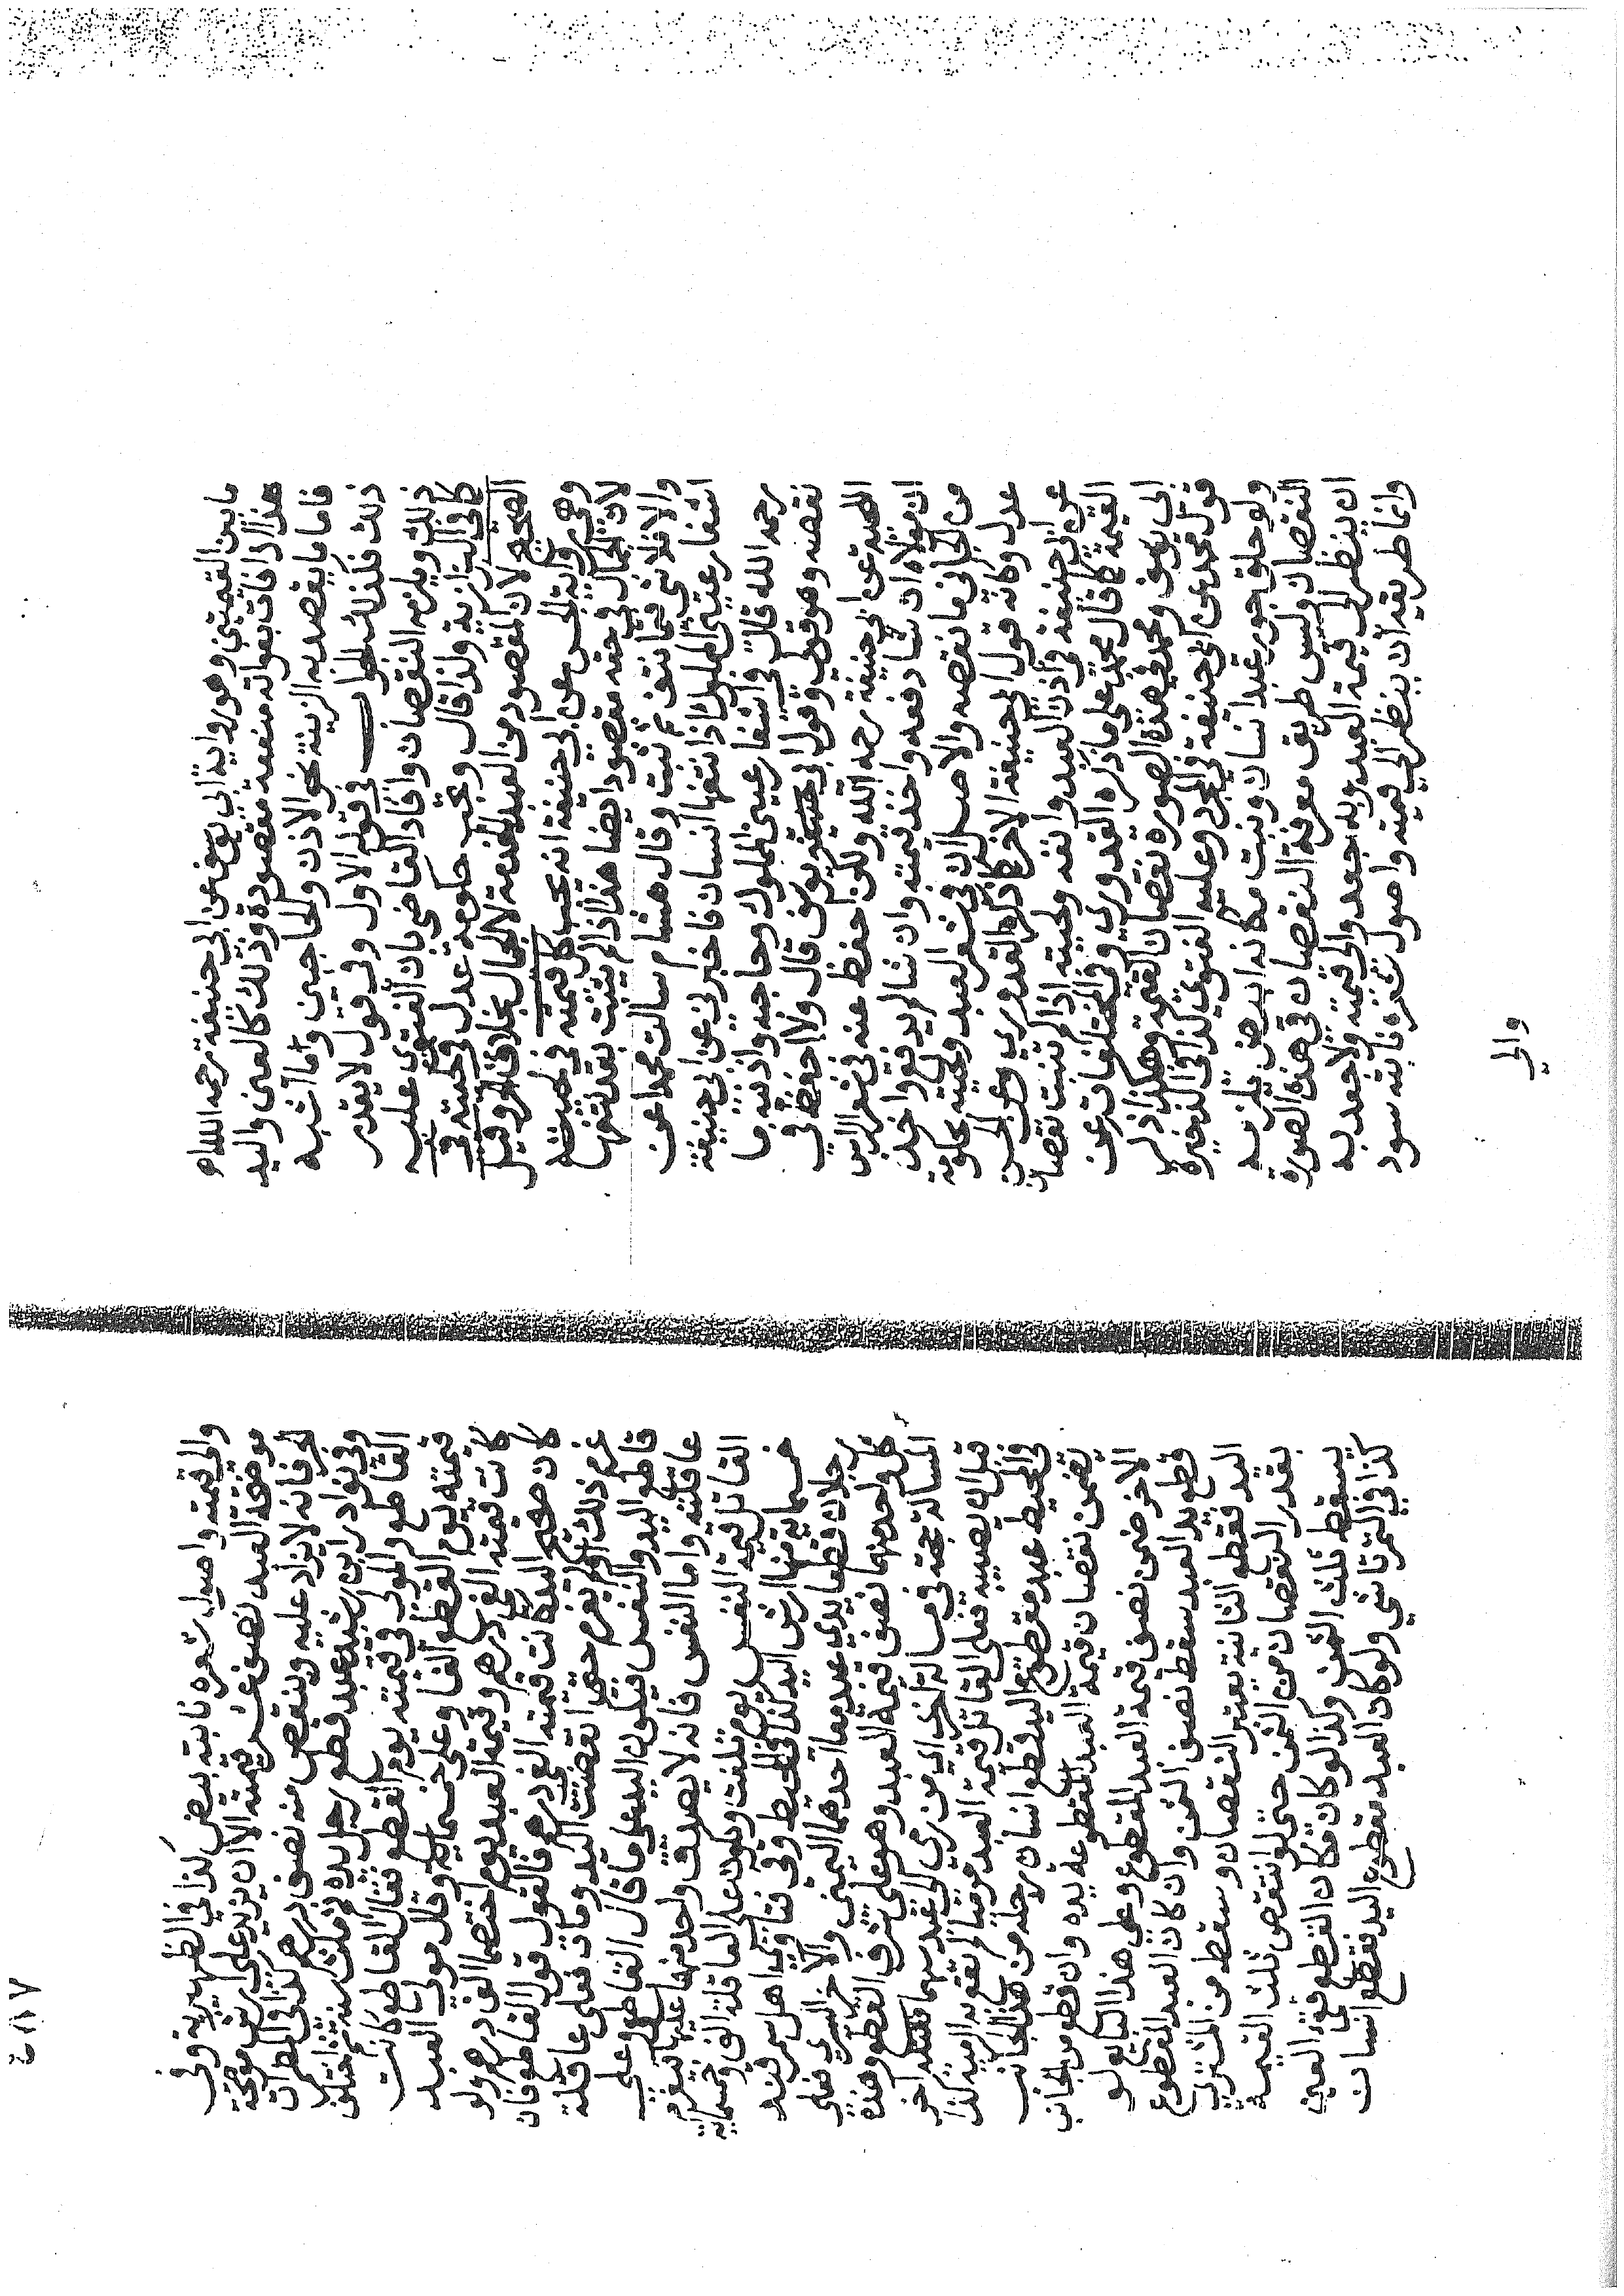 ما بين القيمتين وهو رواية ابي يوسف عن ابي حنيفة رحمه الله
هذا اذا فات بفواته منفعة مقصودة وذلك كالعين واليد
فاما ما يقصد به الزينة نحو الاذن والحاجبين وما اشبه
ذلك فكذلك الجواب في قوله الاول وفي قول لا يقدر
ذلك ويلزمه النقصان وافاد القاضي بان الفتوى عليه
كما في البزازية ولذا قال وتجب حكومة عدل في لحيته في
الصحيح لان المقصود من العبد الخدمة لا الجمال بخلاف الحر وقيل
وهي رواية الحسن عن ابي حنيفة انه يجب كل قيمته في لحيته
لان الجمال في حقه مقصود ايضا هذا اذا لم ينبت بعد نتفها
والا فلا شي فيما نتف ثم نبت وقال هشام سالت محمدا عن
اشفار عيني المملوك اذا نتفها انسان فاخبرني عن ابي حنيفة
رحمه الله قال في اشفار عيني المملوك وحاجبه واذنيه ما
نقصه وهو قولي وقول ابي يوسف قال ولا احفظ في
اللحية عن ابي حنيفة رحمه الله ولكن احفظ عنه في شعر الراس
ان مولاه ان شاء دفعه واخذ قيمته وان شاء لم يدفع واخذ
من الجاني ما نقصه والاصل ان في شعر العبد ولحيته حكومة
عدل وكانه قول ابي حنيفة الاخر كما ذكره القدوري وعن الحسن
عن ابي حنيفة في اذن العبد وانفه ولحيته اذا لم تنبت نقصان
القيمة كما قال محمد على ما ذكره القدوري وفي المختلفات عن
ابي يوسف ومحمد في هذه الصورة نقصان القيمة وهكذا ذكر
قول محمد عن ابي حنيفة في المجرد وعليه الفتوى كذا في الذخيرة
ولو حلق جور عبد انسان ونبت مكانه ابيض فيلزمه
النقصان وليس طريق معرفة النقصان في هذه الصورة
ان ينظر الى قيمة العبد وبه جعد والى قيمته ولا جعد به
وانما طريقه ان ينظر الي قيمته واصول شعره نابتة سود
والي
٤٨٧
والي قيمته واصول شعره نابتة بيض كذا في الظهيرية وفي
موضحة العبد نصف عشر قيمته الا ان يزيد على ارش موضحة
الحر فانه لا يزاد عليه وينقص منه نصف درهم كذا في
وفي نوادر ابن رشيد عبد قطع رجل يده ثم مكث سنة ثم اختلف
القاطع والمولى في قيمته يوم القطع فقال القاطع كانت
قيمته يوم القطع الفا وعلى خمسماية وقال مولى العبد
كانت قيمته الفي درهم وقيمة العبد يوم اختصما الف درهم ولو
كان صحيح اليد كانت قيمته الفي درهم فالقول قول القاطع فان
غرم ذلك او لم يغرم حتى انتقضت اليد ومات فعلى عاقلة
قاطع اليد والنفس فيكون اليد على ما قال القاطع وعلى
عاقلته واما النفس فانه لا يصدق واحد منهما عليها ليغرم
القاتل قيمة النفس يوم تلفت ويكون على العاقلة الف وخمسماية
خمسماية منها ارش اليد كذا في المحيط وفي فتاوي اهل سمرقند
رجلان قطعا يدي عبد معا احدهما اليمنى والاخر اليسرى فعلى
كل واحد منهما نصف قيمة العبد وهو على شرف القطع وهذه
المسالة حجة في مسالة اخرى ان من رمى الى عبد سهما اخر
قبل ان يصيبه فعلى القاتل قيمة العبد مرميا لم تقع به الرمية كذا
في المحيط عبد مقطوع اليد قطع انسان رجله من هذا الجانب
يضمن نقصان قيمة العبد المقطوعة يده وان قطع من الجانب
الاخر ضمن نصف قيمة العبد المقطوع وعلى هذا البايع لو
قطع يد العبد سقط نصف الثمن وان كان العبد المقطوع
اليد فقطع الثانية يعتبر النقصان وسقط من المشتري
بقدر النقصان من الثمن حتى لو انتقص ثلث القيمة
يسقط ثلث الثمن وكذا لو كان مكان القطع فقء العين
كذا في التمرتاشي ولو كان العبد مقطوع اليد فقطع انسان